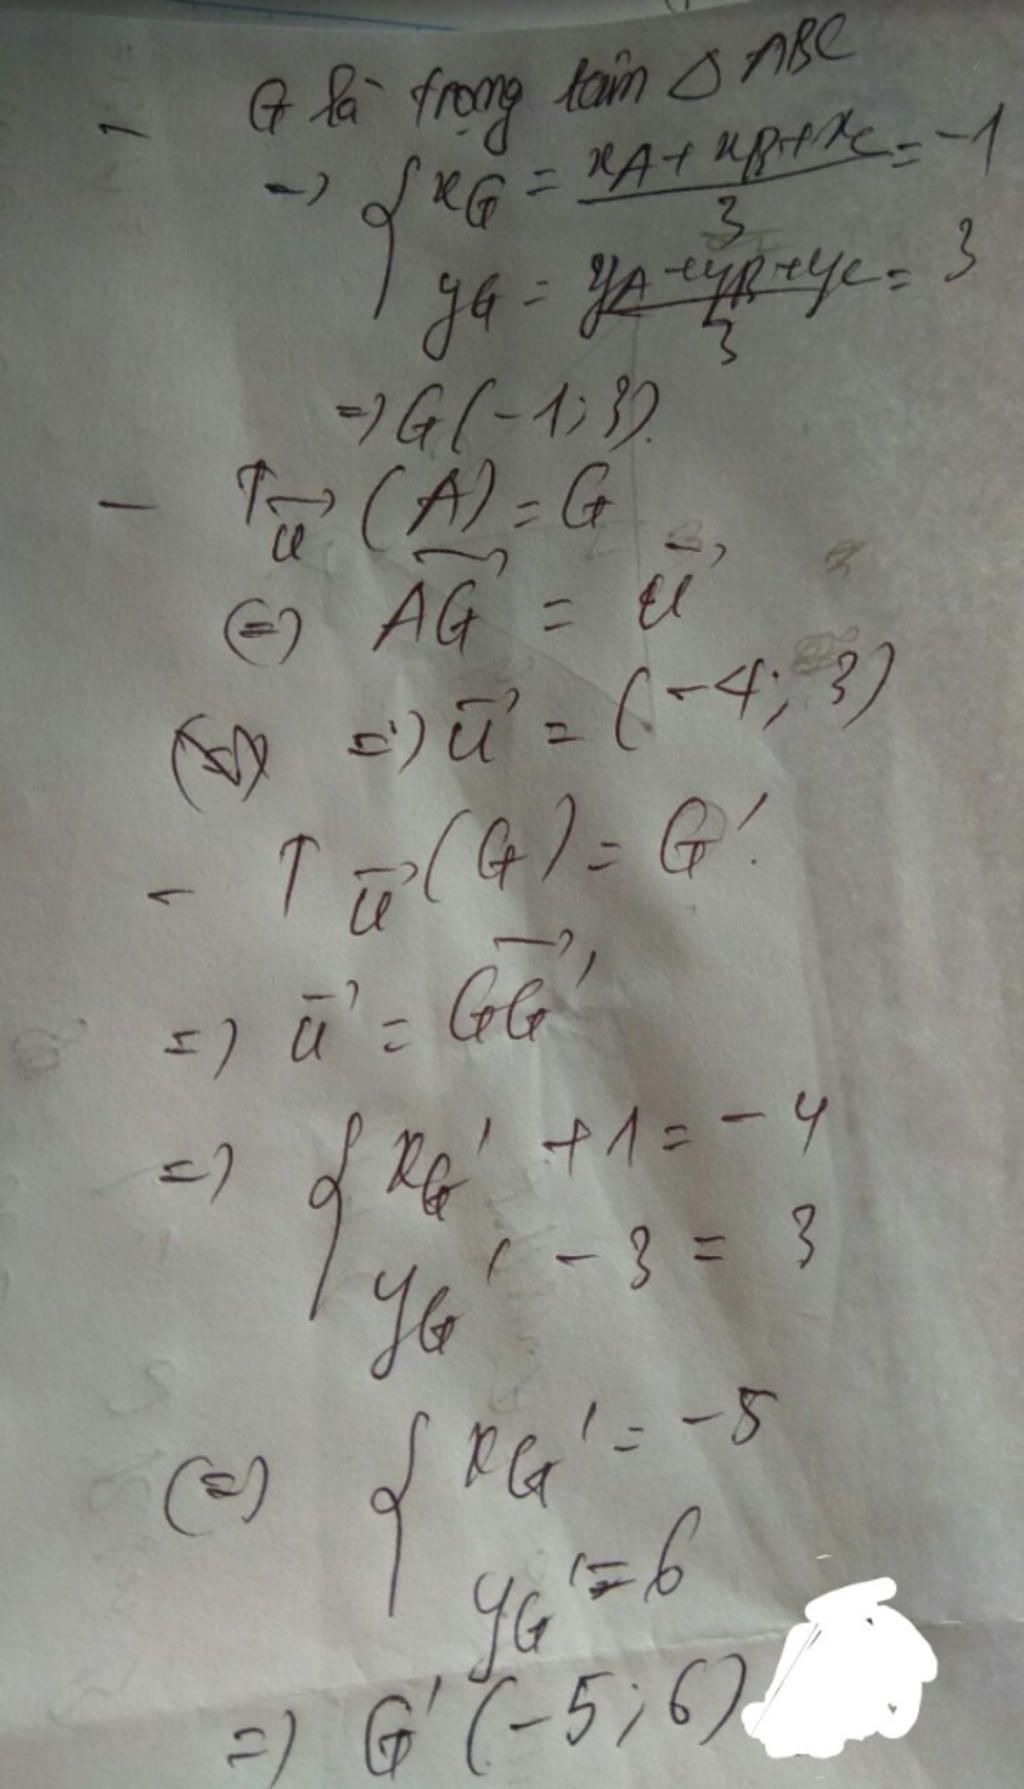 - G là trọng tâm Δ ABC
=> { xG = (xA + xB + xC)/3 = -1
yG = (yA + yB + yC)/3 = 3
=> G(-1; 3).
- T_u⃗ (A) = G
(=) AG⃗ = u⃗
=> u⃗ = (-4; 3)
- T_u⃗ (G) = G'.
=> u⃗ = GG'⃗
=> { xG' + 1 = -4
yG' - 3 = 3
(=) { xG' = -5
yG' = 6
=> G' (-5; 6)